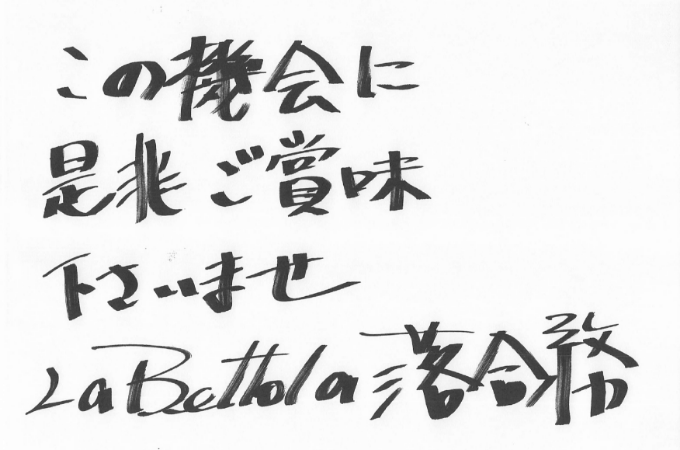 この機会に
是非ご賞味
下さいませ
La Bettola 落合務